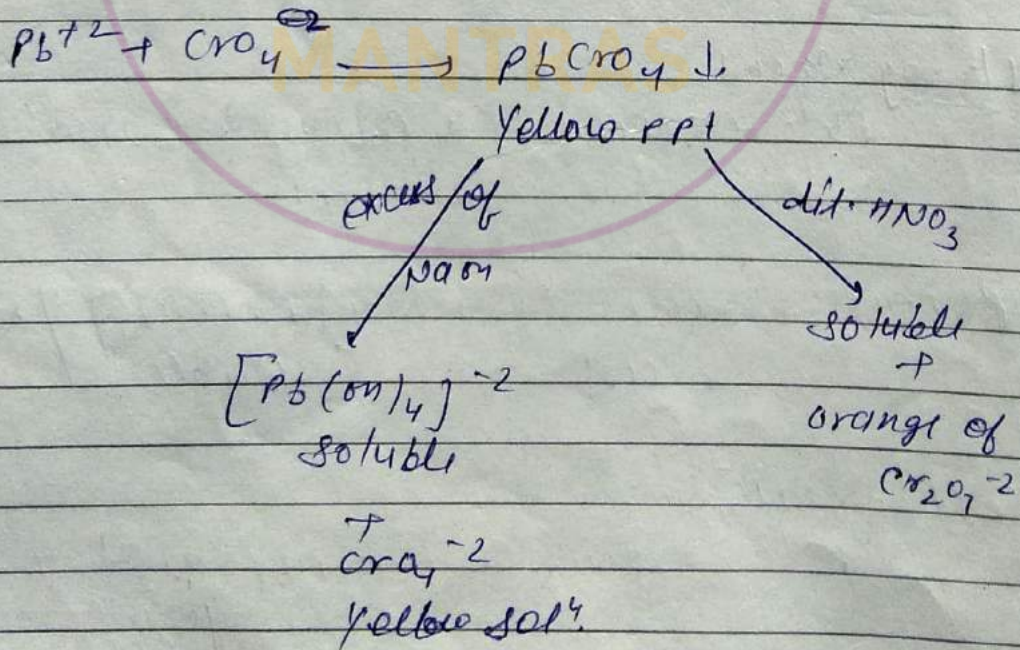 Pb⁺² + CrO₄⁻² → PbCrO₄ ↓
MANTRAS
Yellow ppt
excess of
NaOH
dil. HNO₃
[Pb(OH)₄]⁻²
soluble
+
CrO₄⁻²
Yellow solⁿ.
soluble
+
orange of
Cr₂O₇⁻²